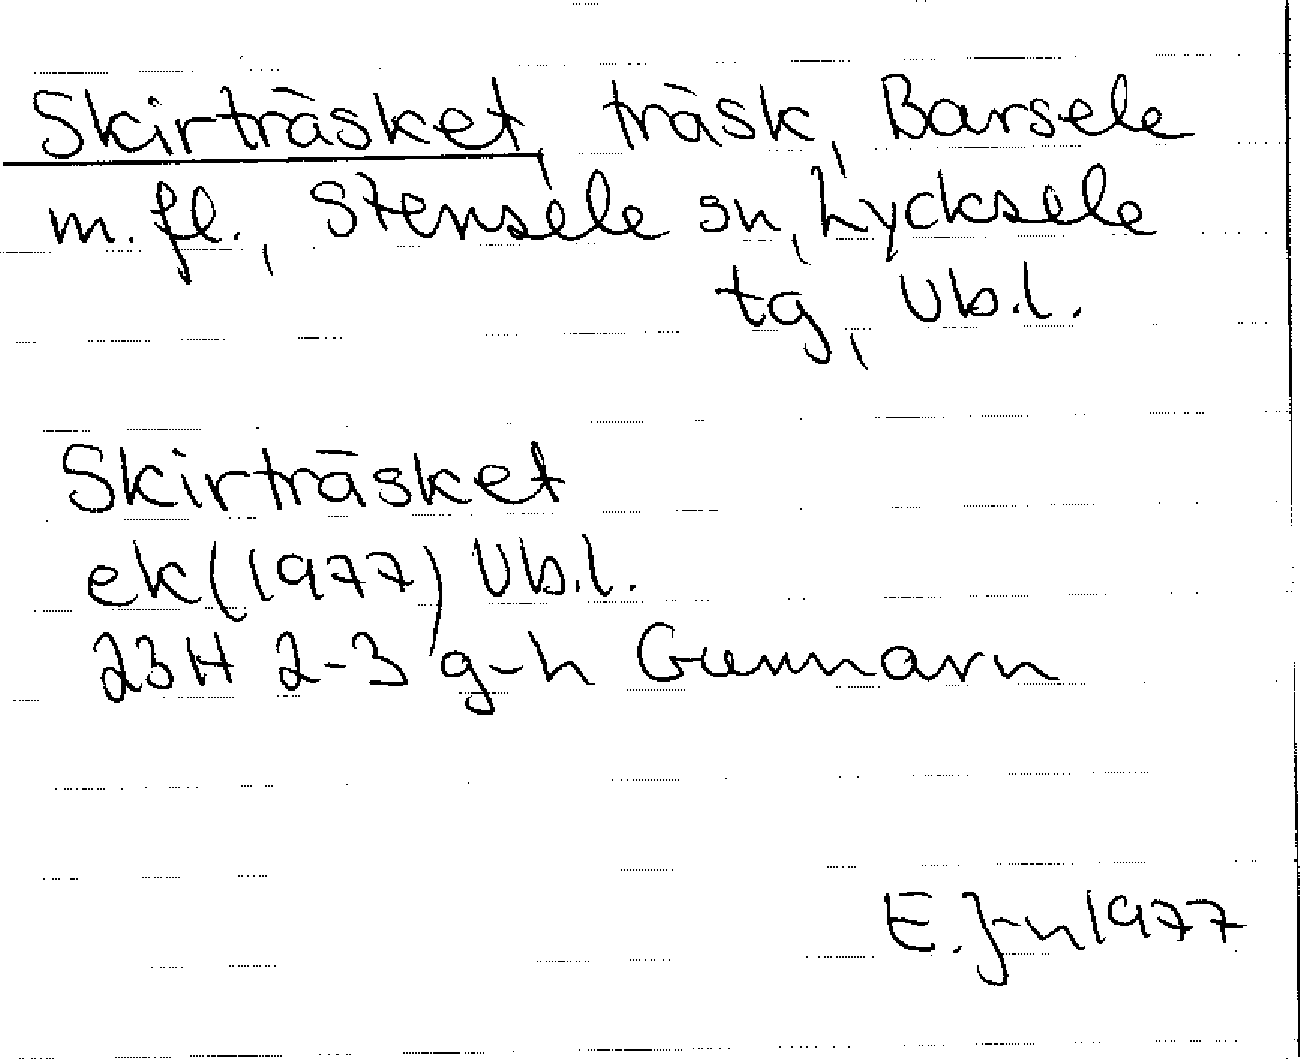 Skirträsket träsk, Barsele
m. fl., Stensele sn, Lycksele
tg, Vb.l.
Skirträsket
ek (1977) Vb.l.
23H 2-3 g-h Gunnarn
E. J-n 1977